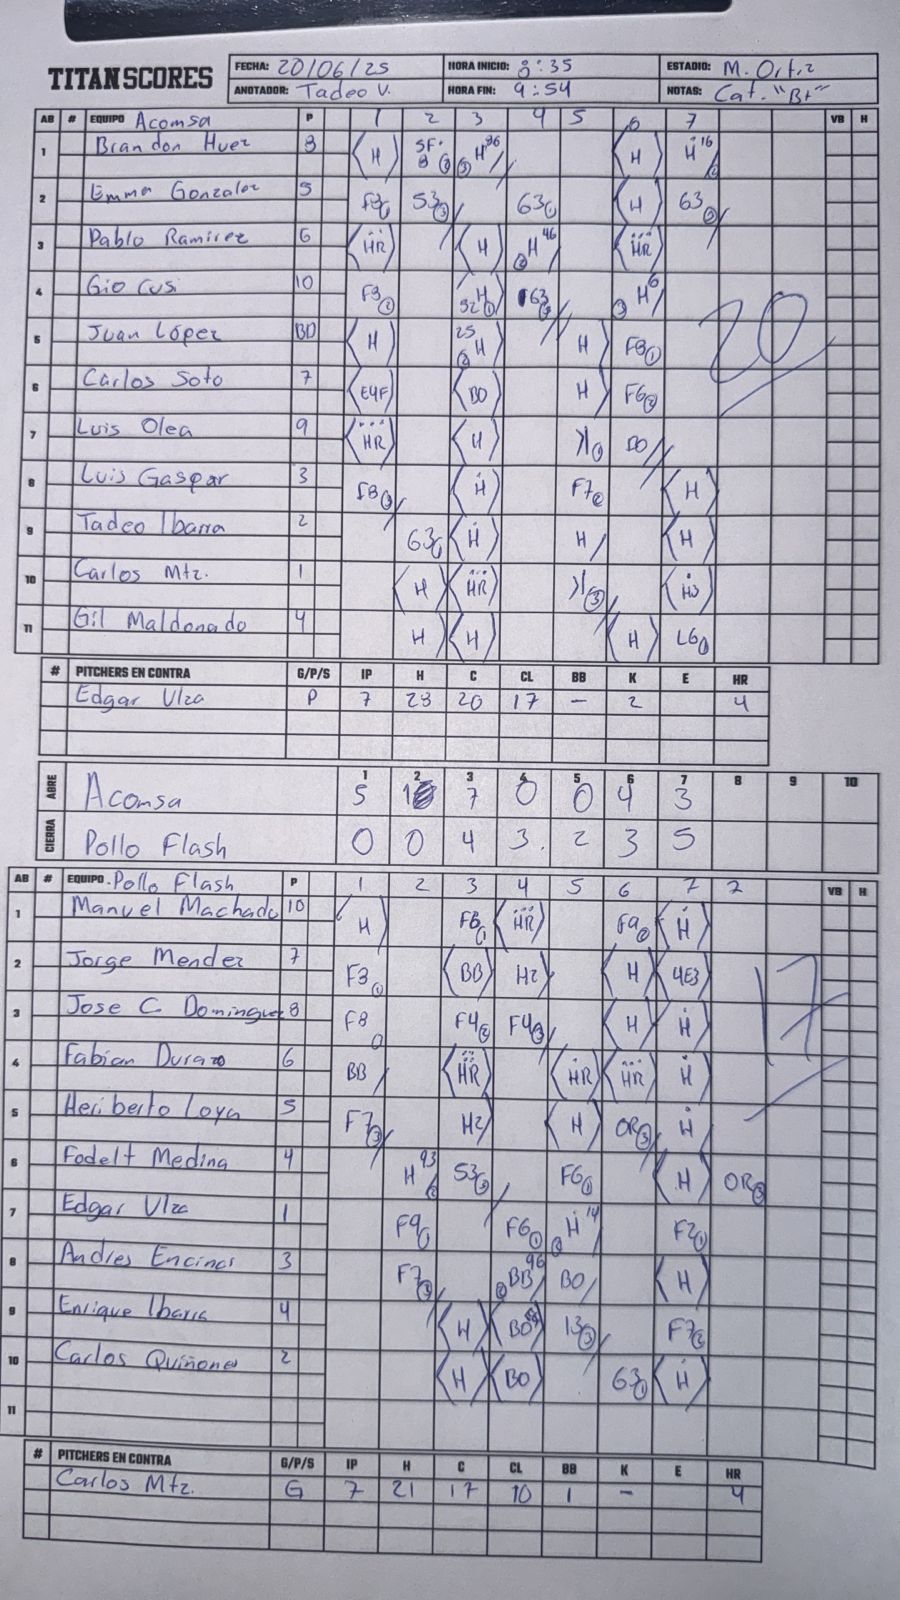 TITAN SCORES
FECHA: 20/06/25 HORA INICIO: 8:35 ESTADIO: M. Ortiz
ANOTADOR: Tadeo V. HORA FIN: 9:54 NOTAS: Cat. "B+"
AB # EQUIPO Acomsa P 1 2 3 4 5 6 7 VB H
1 Brandon Huez 8 H SF. 8 H 96 H H 16
2 Emma Gonzalez 5 53 63 H 63
3 Pablo Ramirez 6 HR H H 46 HR
4 Gio Cusi 10 H 63 H 6
5 Juan López BD H 25 H H F8
6 Carlos Soto 7 E4F BO H F6
7 Luis Olea 9 HR H
8 Luis Gaspar 3 H F7 H
9 Tadeo Ibarra 2 63 H H H
10 Carlos Mtz. 1 H HR H3
11 Gil Maldonado 4 H H H L6
20
# PITCHERS EN CONTRA G/P/S IP H C CL BB K E HR
Edgar Ulza P 7 23 20 17 - 2 4
ABRE 1 2 3 4 5 6 7 8 9 10
Acomsa 5 1 7 0 0 4 3
CIERRA Pollo Flash 0 0 4 3 2 3 5
AB # EQUIPO. Pollo Flash P 1 2 3 4 5 6 7 7 VB H
1 Manuel Machado 10 H HR F9 H
2 Jorge Mendez 7 F3 BB H2 H 4E3
3 Jose C. Dominguez 8 F8 F4 F4 H H
4 Fabian Durazo 6 BB HR HR HR H
5 Heriberto Loya 5 F7 H2 H OR H
6 Fodelt Medina 4 H 93 53 F6 H OR
7 Edgar Ulza 1 F9 F6 H 14 F2
8 Andres Encinas 3 F7 BB 96 BO H
9 Enrique Ibarra 4 H BO 13 F7
10 Carlos Quiñones 2 H BO 63 H
11
17
# PITCHERS EN CONTRA G/P/S IP H C CL BB K E HR
Carlos Mtz. G 7 21 17 10 1 - 4